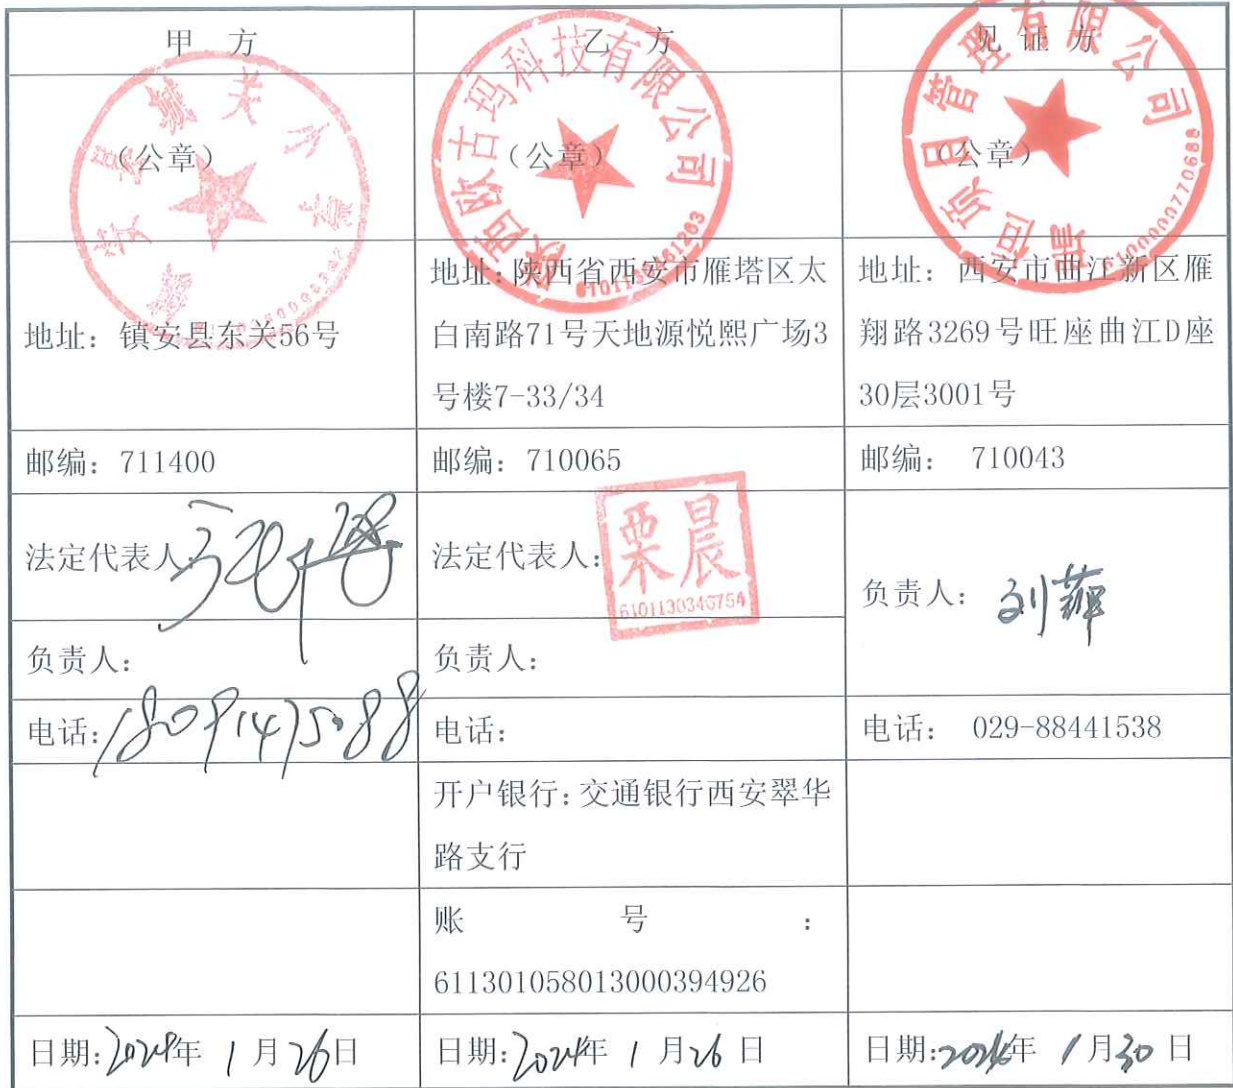 甲 方
乙 方
见 证 方
(公章)
(公章)
(公章)
陕西欧古玛科技有限公司
瑞恒项目管理有限公司
6100000770688
地址: 镇安县东关56号
地址: 陕西省西安市雁塔区太
白南路71号天地源悦熙广场3
号楼7-33/34
地址: 西安市曲江新区雁
翔路3269号旺座曲江D座
30层3001号
邮编: 711400
邮编: 710065
邮编: 710043
法定代表人:
法定代表人:
栗晨
6101130346754
负责人: 刘萍
负责人:
负责人:
电话: 18091475088
电话:
电话: 029-88441538
开户银行: 交通银行西安翠华
路支行
账 号 :
611301058013000394926
日期: 2024年 1月26日
日期: 2024年 1月26日
日期: 2024年 1月30日